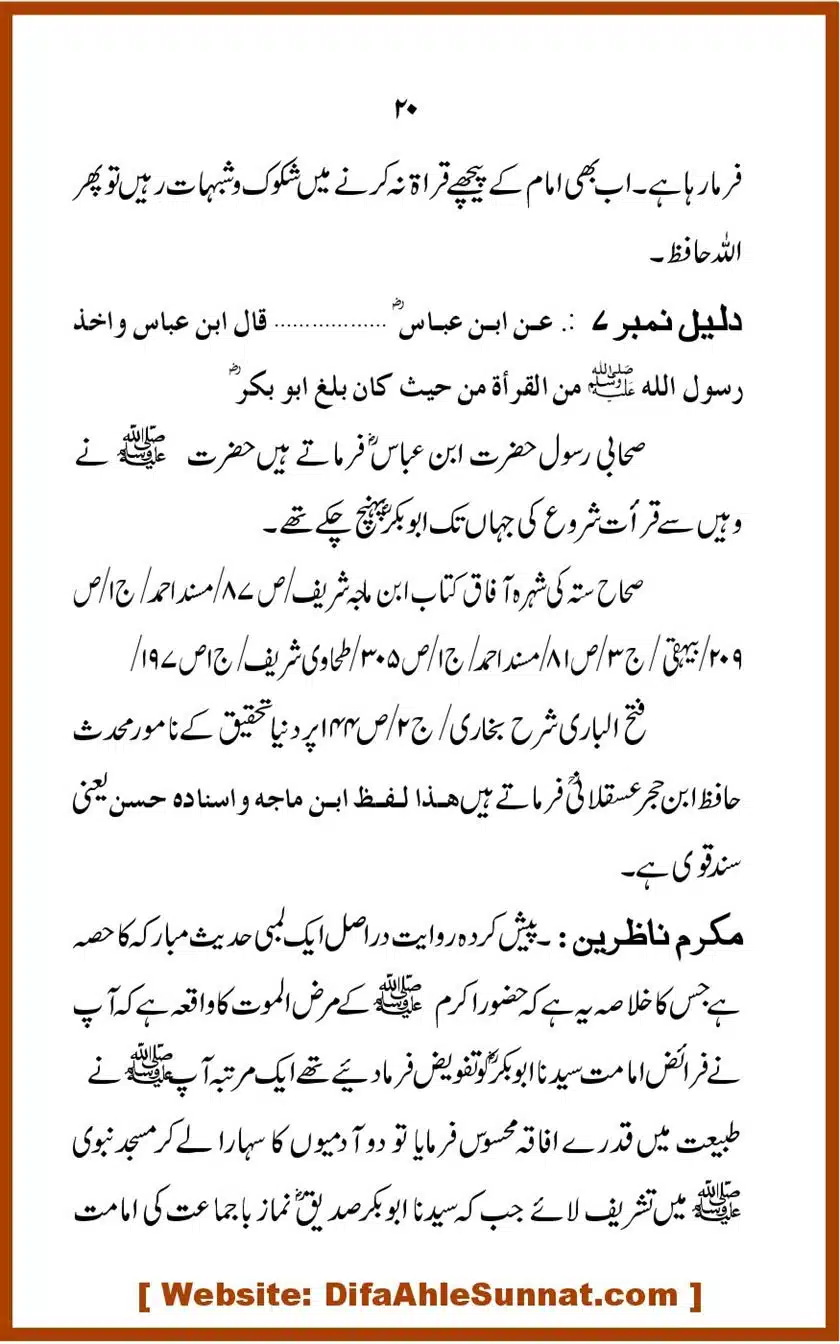 ۲۰
فرما رہا ہے۔ اب بھی امام کے پیچھے قراۃ نہ کرنے میں شکوک و شبہات رہیں تو پھر
اللہ حافظ۔
دلیل نمبر ۷ :. عن ابن عباسؓ .................. قال ابن عباس واخذ
رسول الله ﷺ من القرأة من حيث كان بلغ ابو بكرؓ
صحابی رسول حضرت ابن عباسؓ فرماتے ہیں حضرت ﷺ نے
وہیں سے قرأت شروع کی جہاں تک ابوبکرؓ پہنچ چکے تھے۔
صحاح ستہ کی شہرہ آفاق کتاب ابن ماجہ شریف/ص۸۷/مسند احمد/ج۱/ص
۲۰۹/بیہقی/ج۳/ص۸۱/مسند احمد/ج۱/ص۳۰۵/طحاوی شریف/ج۱ص۱۹۷/
فتح الباری شرح بخاری/ج۲/ص۱۴۴ پر دنیا تحقیق کے نامور محدث
حافظ ابن حجر عسقلانیؒ فرماتے ہیں هذا لفظ ابن ماجه واسناده حسن یعنی
سند قوی ہے۔
مکرم ناظرین :۔ پیش کردہ روایت دراصل ایک لمبی حدیث مبارکہ کا حصہ
ہے جس کا خلاصہ یہ ہے کہ حضور اکرم ﷺ کے مرض الموت کا واقعہ ہے کہ آپ
نے فرائض امامت سیدنا ابوبکرؓ کو تفویض فرما دیئے تھے ایک مرتبہ آپ ﷺ نے
طبیعت میں قدرے افاقہ محسوس فرمایا تو دو آدمیوں کا سہارا لے کر مسجد نبوی
ﷺ میں تشریف لائے جب کہ سیدنا ابوبکر صدیقؓ نماز باجماعت کی امامت
[ Website: DifaAhleSunnat.com ]